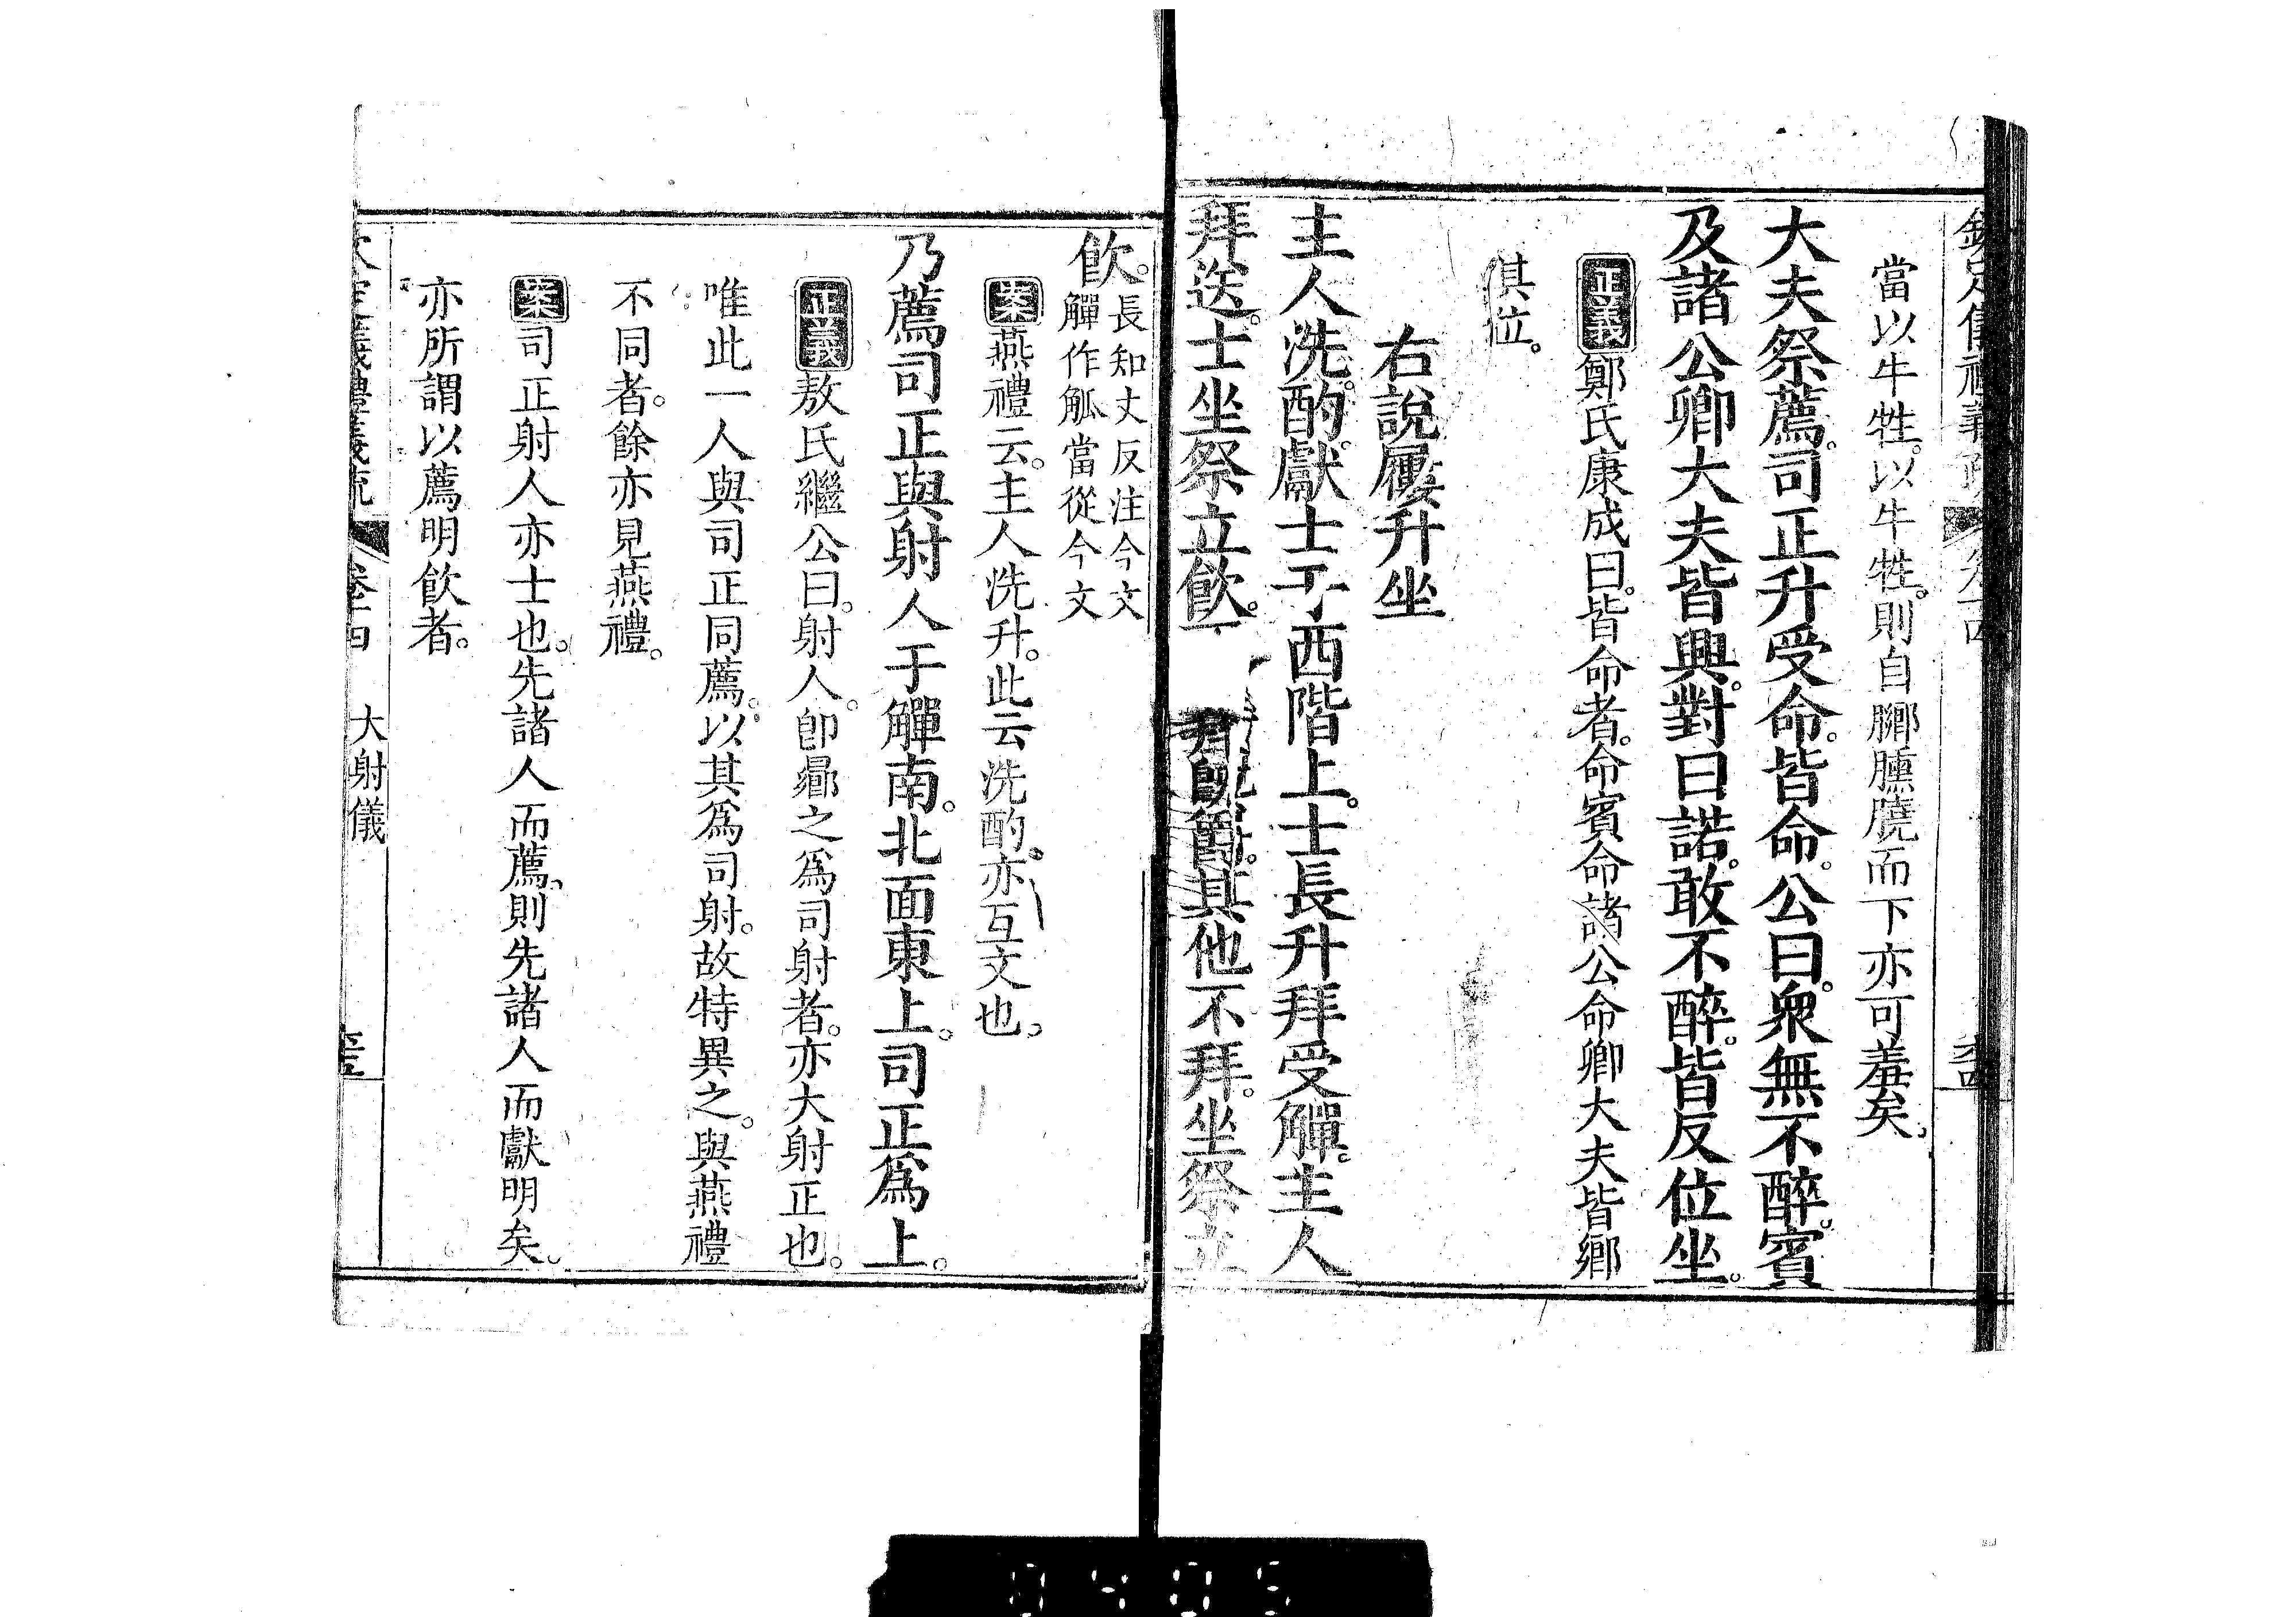 當以牛牲。以牛牲。則自膷臐膮而下亦可羞矣。
大夫祭薦。司正升受命。皆命。公曰。衆無不醉。賓
及諸公卿大夫皆興。對曰。諾。敢不醉。皆反位坐。
正義鄭氏康成曰。皆命者。命賓命諸公命卿大夫皆鄉
其位。
右說屨升坐
主人洗。酌。獻士于西階上。士長升拜受觶。主人
拜送。士坐祭立飮。不
既爵。其他不拜。坐祭立
飮。長知丈反注今文
觶作觚當從今文
案燕禮云。主人洗升。此云洗酌。亦互文也。
乃薦司正與射人于觶南。北面東上。司正爲上。
正義敖氏繼公曰。射人。卽曏之爲司射者。亦大射正也。
唯此一人與司正同薦。以其爲司射。故特異之。與燕禮
不同者。餘亦見燕禮。
案司正射人亦士也。先諸人而薦。則先諸人而獻明矣。
亦所謂以薦明飮者。
欽定儀禮義疏 卷十四 大射儀